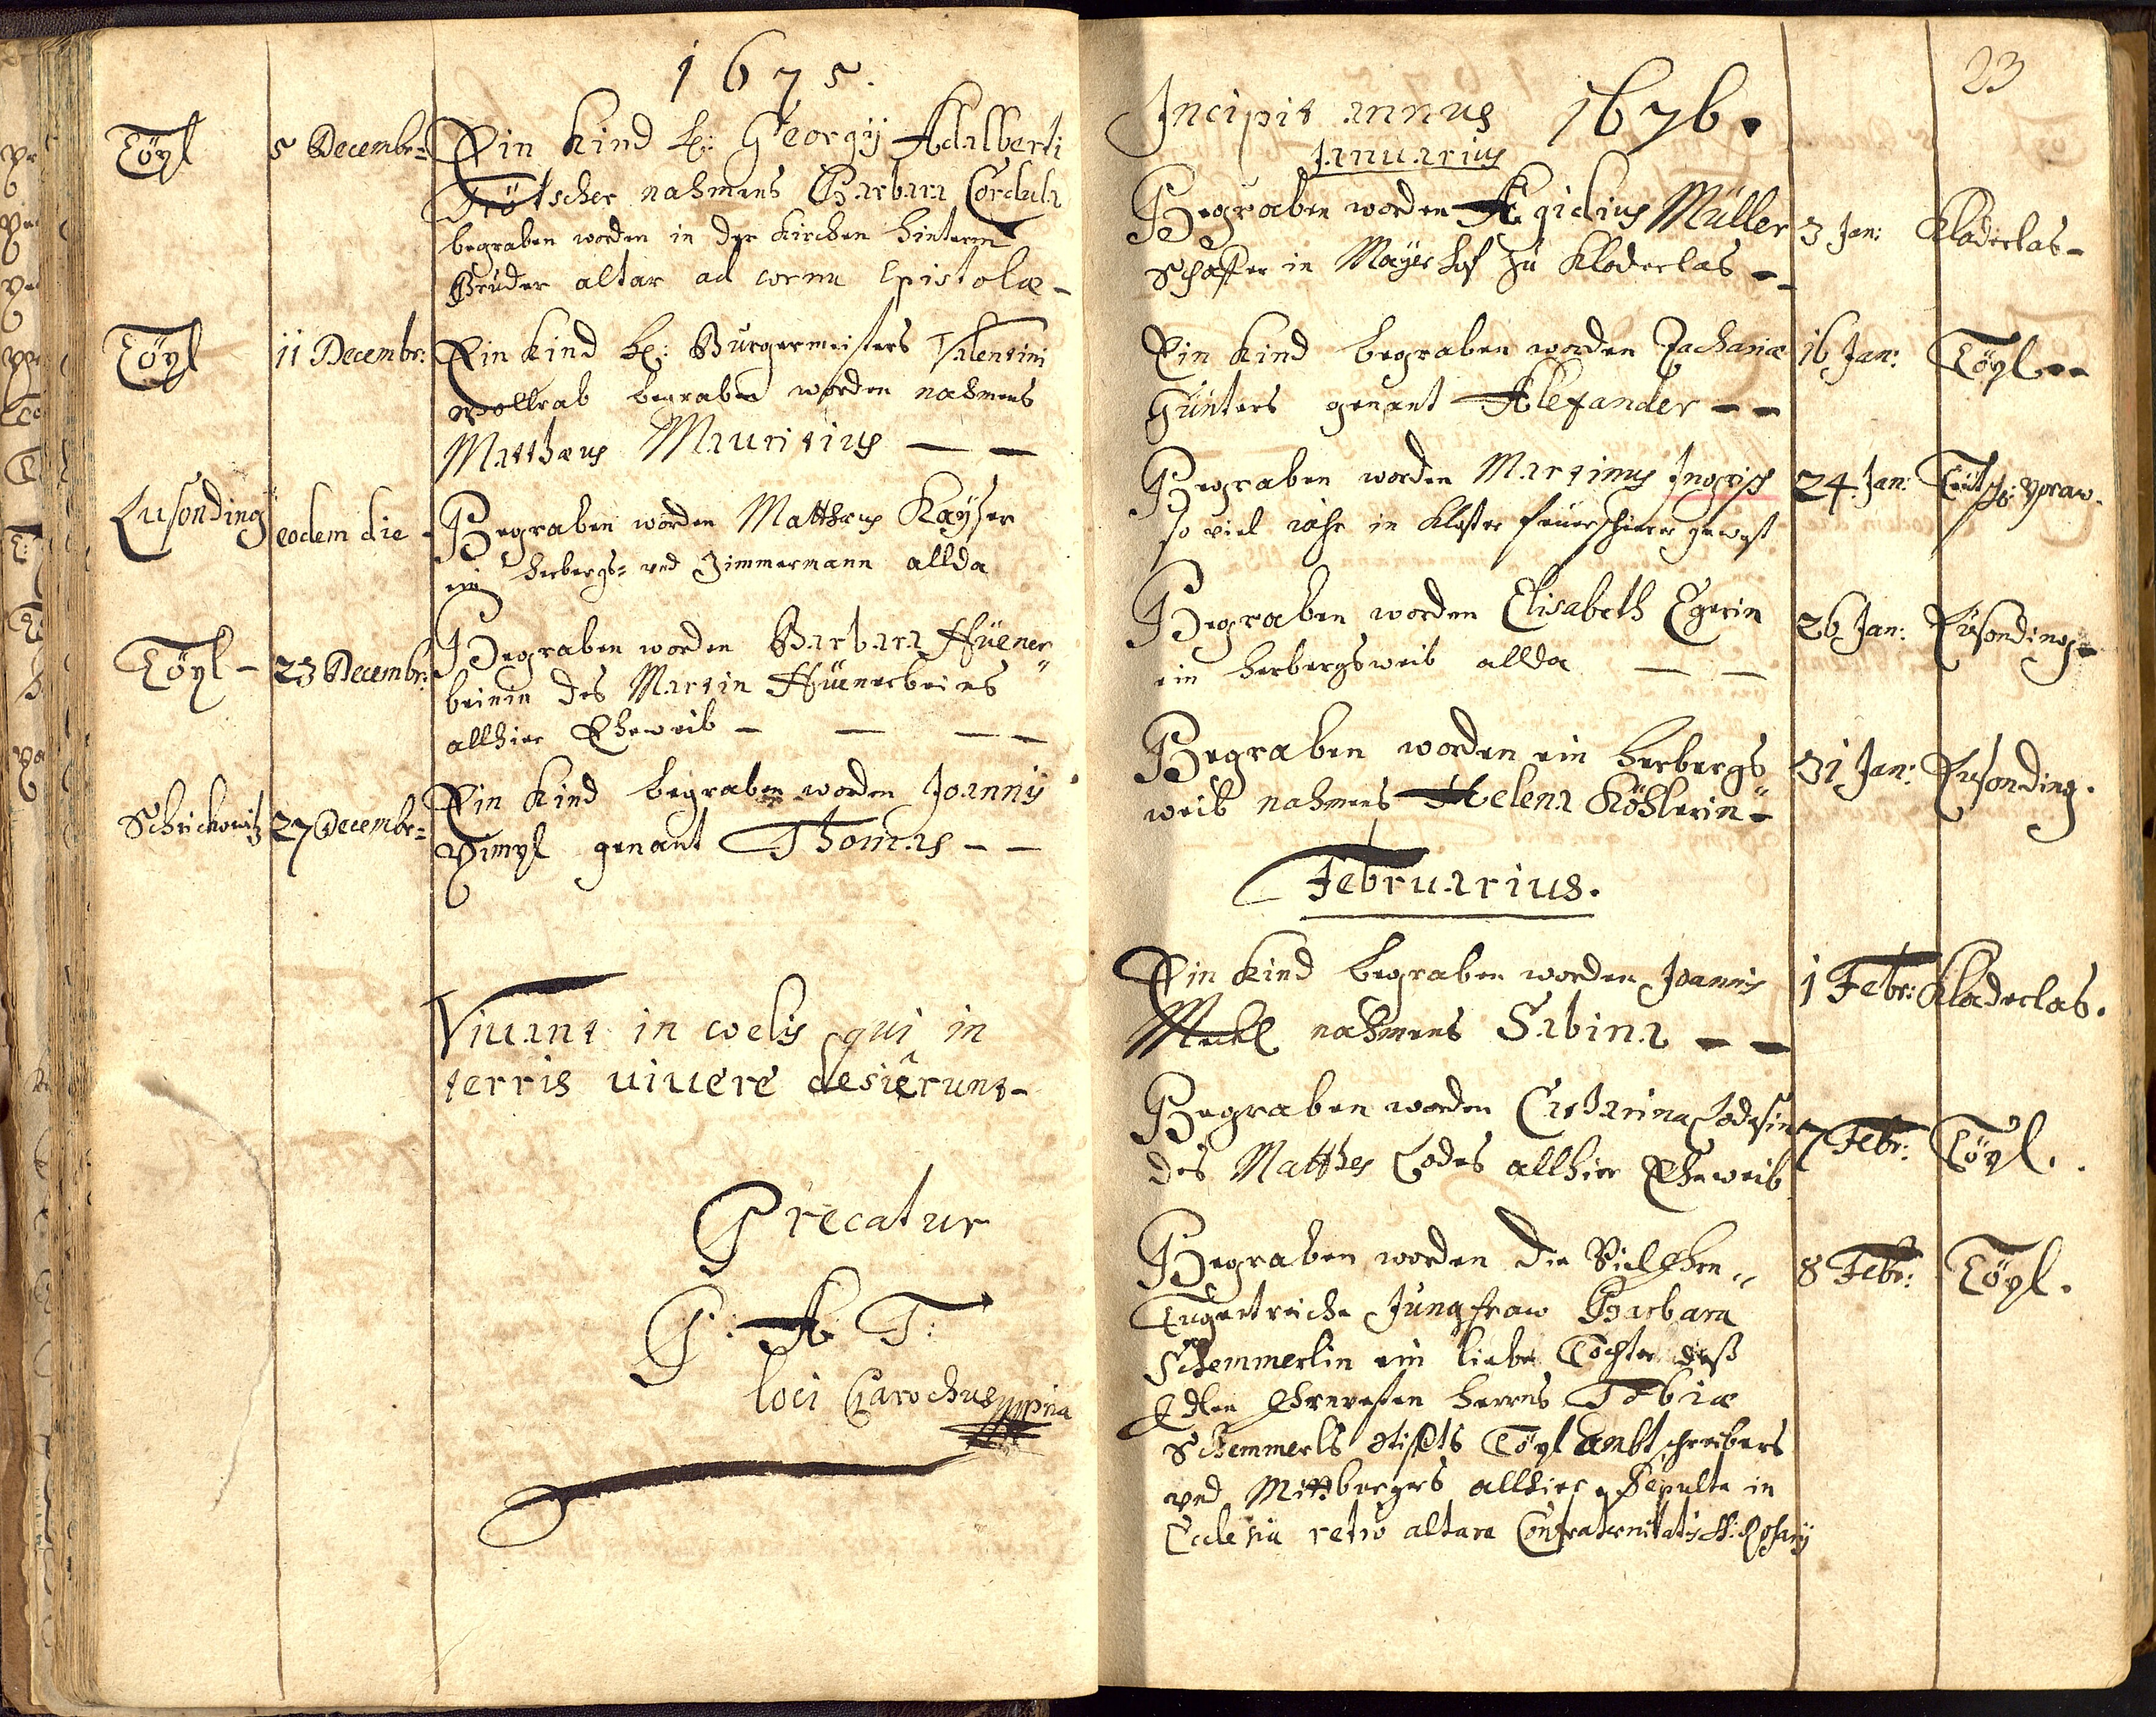 1675.
Töpl 5 Decembr: Ein Kind H: Georgij Adalberti
Trötscher nahmens Barbara Cordula
begraben worden in der Kirchen hinterm
Bruder altar ad cornu Epistolæ -
Töpl 11 Decembr: Ein Kind H: Burgermeisters Valentini
Wollrab begraben worden nahmens
Matthæus Mauritius — —
Lusonding eodem die - Begraben worden Matthæus Kayser
ein herbergs= vnd Zimmermann allda
Töpl - 23 Decembr: Begraben worden Barbara Hüener
beinin des Martin Hüenerbeines
allhier Eheweib - — — —
Schrickowitz 27 Decembr= Ein Kind begraben worden Joannis
Pimpl genant Thomas - -
Viuant in coelis qui in
terris uiuere desierunt -
Precatur
P: A: T:
loci Parochus mppria
23
Incipit annus 1676.
Januarius
Begraben worden Ægidius Müller 3 Jan: Kladerlas -
Schaffer in Mayer hof zu Kloderlas - -
Ein Kind begraben worden Zachariæ 16 Jan: Töpl - -
Günters genant Alexander - -
Begraben worden Martinus Ingrisch 24. Jan:
so viel jahr in Kloster gewest
Begraben worden Elisabeth Egerin 26 Jan: Lusonding -
ein herbergsweib allda — —
Begraben worden ein herbergs 31 Jan: Lusonding.
weib nahmens Helena Köhlerin -
Februarius.
Ein Kind begraben worden Joannis 1 Febr: Kladerlas.
nahmens Sabina - -
Begraben worden Catharina Lodesin 7 Febr: Töpl.
des Matthes Lodes allhier Eheweib
Begraben worden die Viel Ehrn 8 Febr: Töpl.
Tugentreiche Jungfraw Barbara
Schemmerlin ein liebe Tochter deß
Edlen Ehrnvesten Herrns Tobiæ
Schemmerls Stiffts Töpl Ambtschreibers
vnd Mittburgers allhier, Sepulta in
Ecclesia retro altare Confraternitatis SS: Rosarij